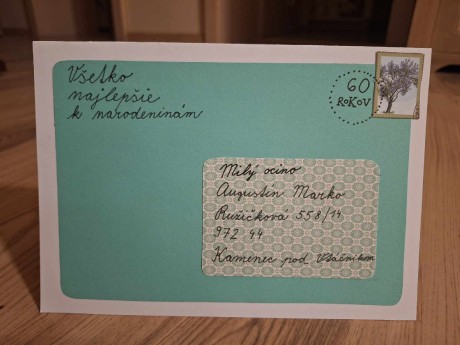 Všetko
najlepšie
k narodeninám
60
ROKOV
Milý ocino
Augustín Marko
Ružičková 558/14
972 44
Kamenec pod Vtáčnikom